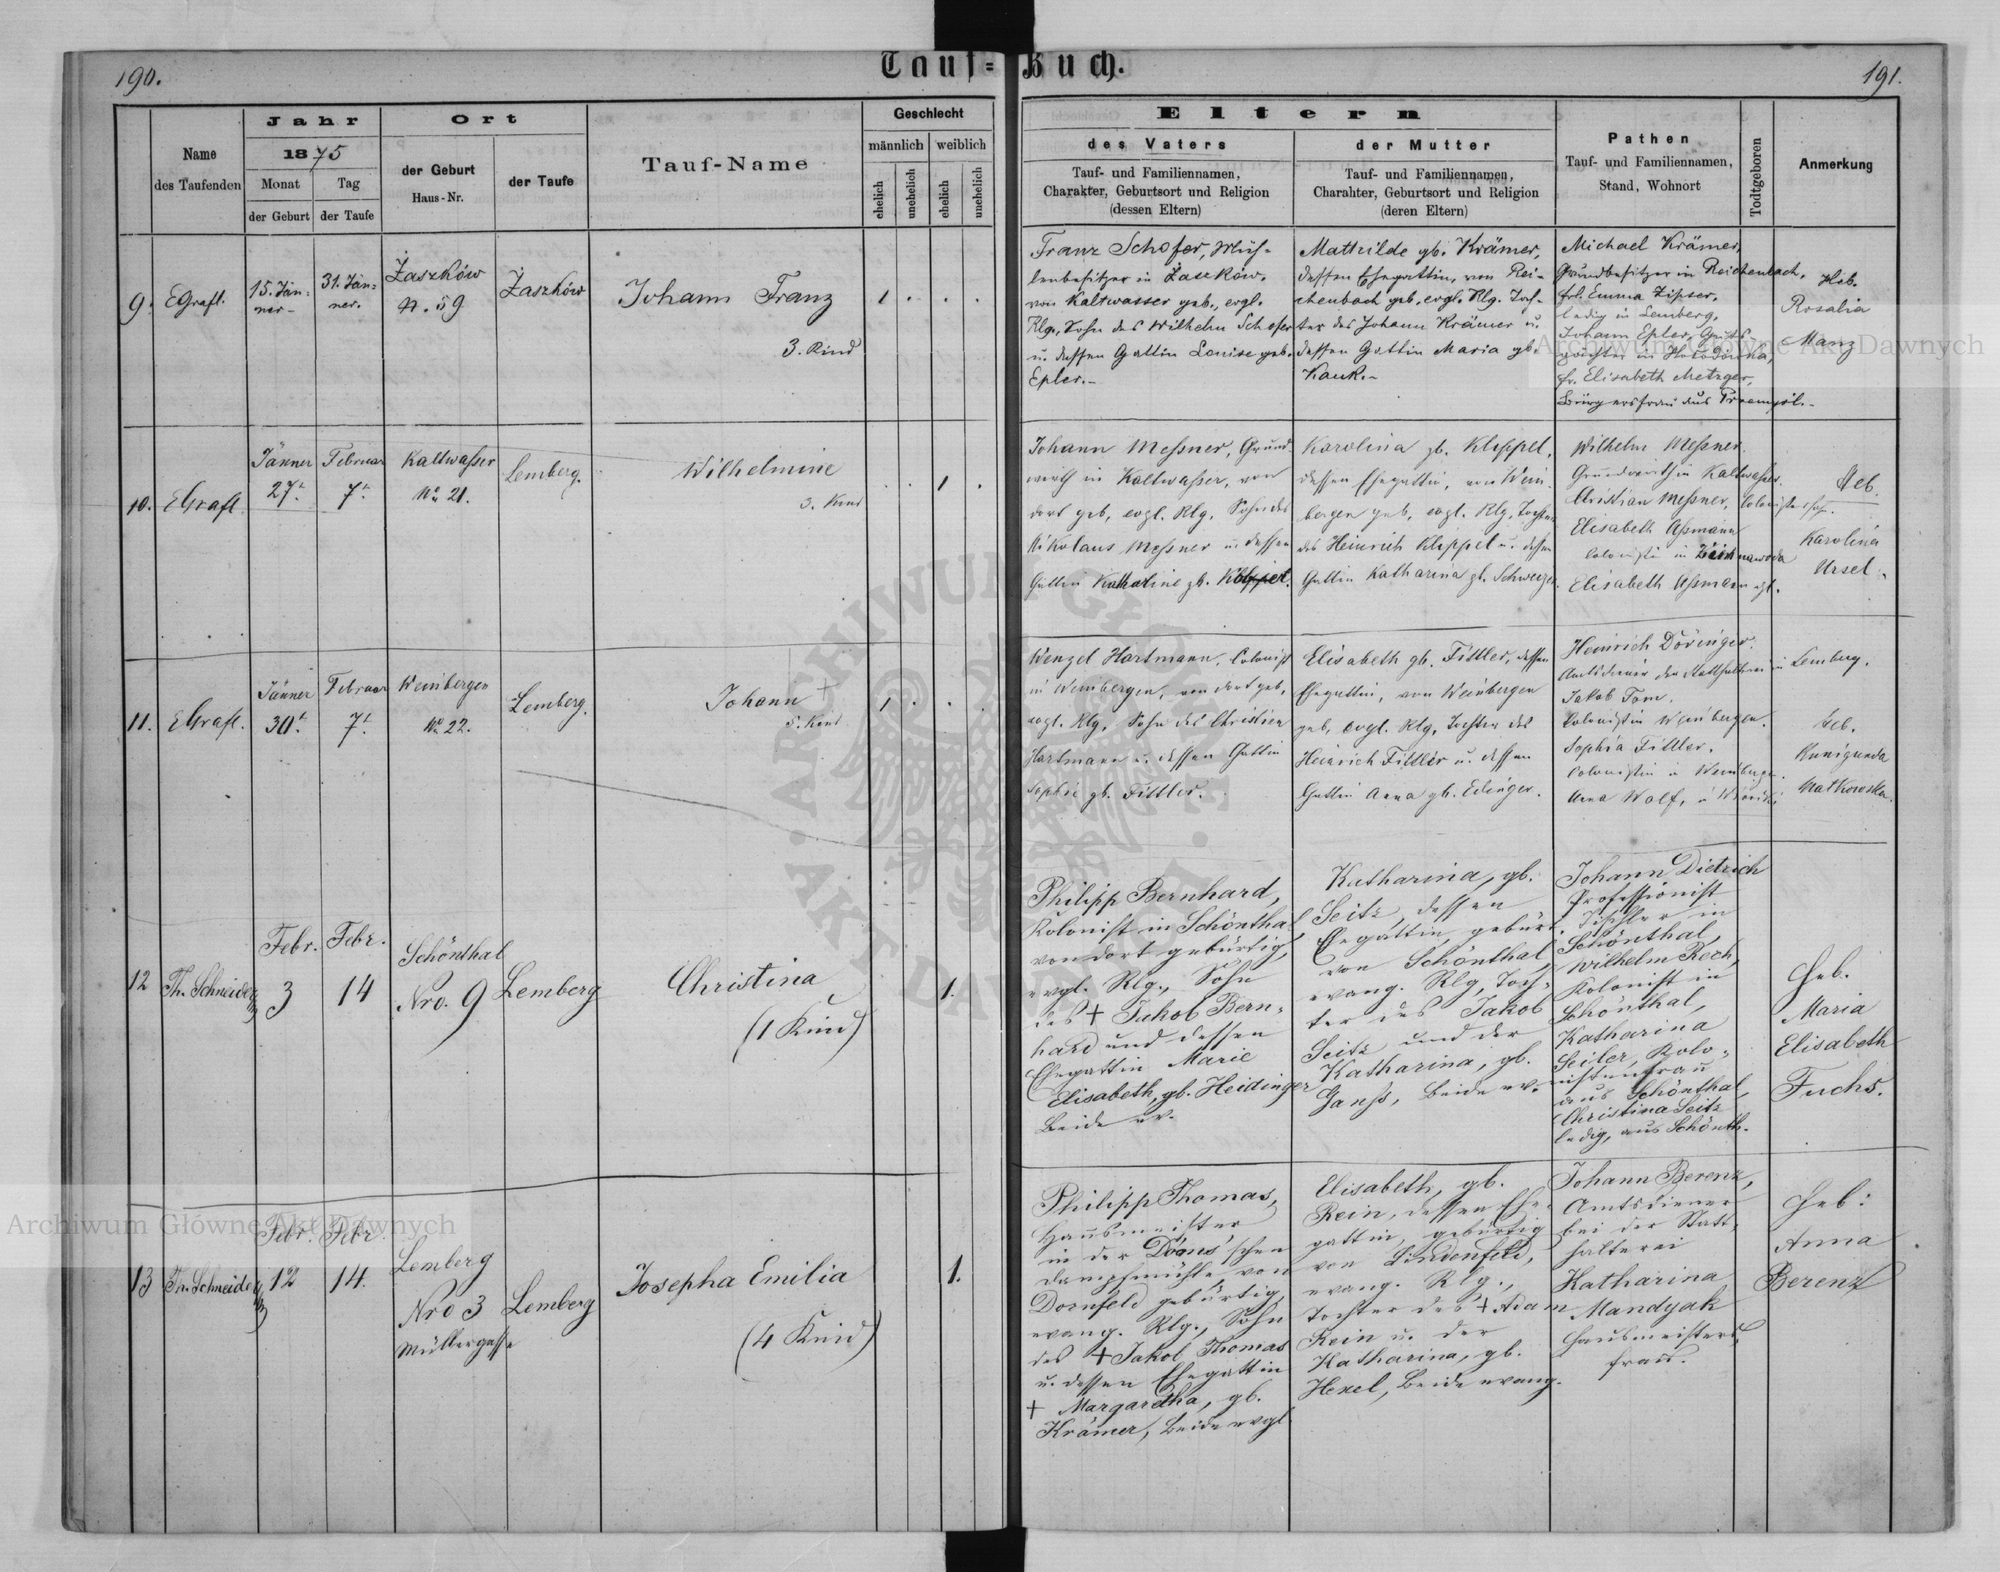 190.
Tauf=Buch.
191.
Name
des Taufenden
Jahr
1875
Monat
der Geburt
Tag
der Taufe
Ort
der Geburt
Haus-Nr.
der Taufe
Tauf-Name
Geschlecht
männlich
weiblich
ehelich
unehelich
ehelich
unehelich
Eltern
des Vaters
Tauf- und Familiennamen,
Charakter, Geburtsort und Religion
(dessen Eltern)
der Mutter
Tauf- und Familiennamen,
Charahter, Geburtsort und Religion
(deren Eltern)
Pathen
Tauf- und Familiennamen,
Stand, Wohnort
Todtgeboren
Anmerkung
9.
EGrafl.
15. Jän-
ner-
31. Jän-
ner.
Zaszków
N. 59
Zaszków
Johann Franz
3. Kind
1
Franz Schofer, Müh-
lenbesitzer in Zaszków,
von Kaltwasser geb., evgl.
Rlg., Sohn des Wilhelm Schofer
u. dessen Gattin Louise geb.
Epler.-
Mathilde gb. Krämer,
dessen Ehegattin, von Rei-
chenbach geb., evgl. Rlg. Toch-
ter des Johann Krämer u.
dessen Gattin Maria gb.
Kauk.-
Michael Krämer,
Grundbesitzer in Reichenbach,
Frl. Emma Zipser,
ledig in Lemberg,
Johann Epler, Guts-
pächter in
fr. Elisabeth Metzger,
Bürgersfrau aus Przemysl.-
Heb.
Rosalia
Manz
10.
EGrafl
Jänner
27t.
Februar
7t.
Kaltwasser
No 21.
Lemberg.
Wilhelmine
3. Kind
1
Johann Meßner, Grund-
wirth in Kaltwasser, von
dort geb, evgl. Rlg. Sohn des
Nikolaus Meßner u. dessen
Gattin Katharine gb.
Karolina gb. Klippel,
dessen Ehegattin, von Wein-
bergen geb, evgl. Rlg, Tochter
des Heinrich Klippel u. dessen
Gattin Katharina gb.
Wilhelm Meßner.
Grundwirth in Kaltwasser.
Christian Meßner,
Elisabeth Aßmann
Colonistin in
Elisabeth Aßmann
Heb.
Karolina
Ursel.
11.
EGrafl.
Jänner
30t.
Februar
7t
Weinbergen
No 22.
Lemberg.
Johann +
5. Kind.
1
Wenzel Hartmann, Colonist
in Weinbergen, von dort geb,
evgl. Rlg, Sohn des Christian
Hartmann u. dessen Gattin
Sophie gb. Fittler.
Elisabeth gb. Fittler, dessen
Ehegattin, von Weinbergen
geb, evgl. Rlg, Tochter des
Heinrich Fittler u. dessen
Gattin Anna gb. Edinger.
Heinrich Döringer.
Amtsdiener der Statthalterei in Lemberg.
Jakob Tom.
Colonist in Weinbergen.
Sophia Fittler.
Colonistin in Weinbergen.
Anna Wolf, in
Heb.
Kunigunda
Matkowska.
12
Th. Schneider
Febr.
3
Febr.
14
Schönthal
Nro. 9
Lemberg
Christina
(1 Kind)
1.
Philipp Bernhard,
Kolonist in Schönthal,
von dort gebürtig,
evgl. Rlg., Sohn
des + Jakob Bern-
hard und dessen
Ehegattin Marie
Elisabeth, gb. Heidinger
Beide ev.
Katharina, gb.
Seitz, dessen
Ehegattin, gebürt.
von Schönthal,
evang. Rlg, Toch-
ter des Jakob
Seitz und der
Katharina, gb.
Ganß, Beide ev.
Johann Dietrich
Professionist
Tischler in
Schönthal,
Wilhelm Rech,
Kolonist in
Schönthal,
Katharina
Seiler, Kolo-
nistenfrau
aus Schönthal,
Christina Seitz
ledig, aus Schönth.
Heb.
Maria
Elisabeth
Fuchs.
13
Th. Schneider
Febr.
12
Febr
14.
Lemberg
Nro 3
Müllergasse
Lemberg
Josepha Emilia
(4 Kind)
1.
Philipp Thomas,
Hausmeister
in der Doms'schen
Dampfmühle, von
Dornfeld gebürtig,
evang. Rlg., Sohn
des + Jakob Thomas
u. dessen Ehegattin
+ Margaretha, gb.
Krämer, Beide evgl
Elisabeth, gb.
Rein, dessen Ehe-
gattin, gebürtig
von Lindenfeld,
evang. Rlg.,
Tochter des + Adam
Rein u. der
Katharina, gb.
Hexel, Beide evang.
Johann Berenz,
Amtsdiener
bei der Statt-
halterei
Katharina
Mandyak
Hausmeisters
frau.
Heb:
Anna
Berenz
Archiwum Główne Akt Dawnych
Archiwum Główne Akt Dawnych